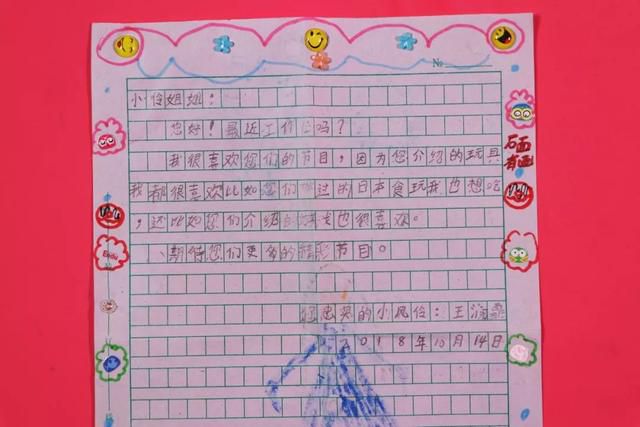 №
小伶姐姐：
您好！最近工作忙吗？
我很喜欢您们的节目，因为您介绍的玩具
我都很喜欢比如您们过的日本食玩我也想吃
，还比如您们介绍也很喜欢。
、期待您们更多的精彩节目。
您忠实的小风伶：王润
2018年10月14日
面
有画